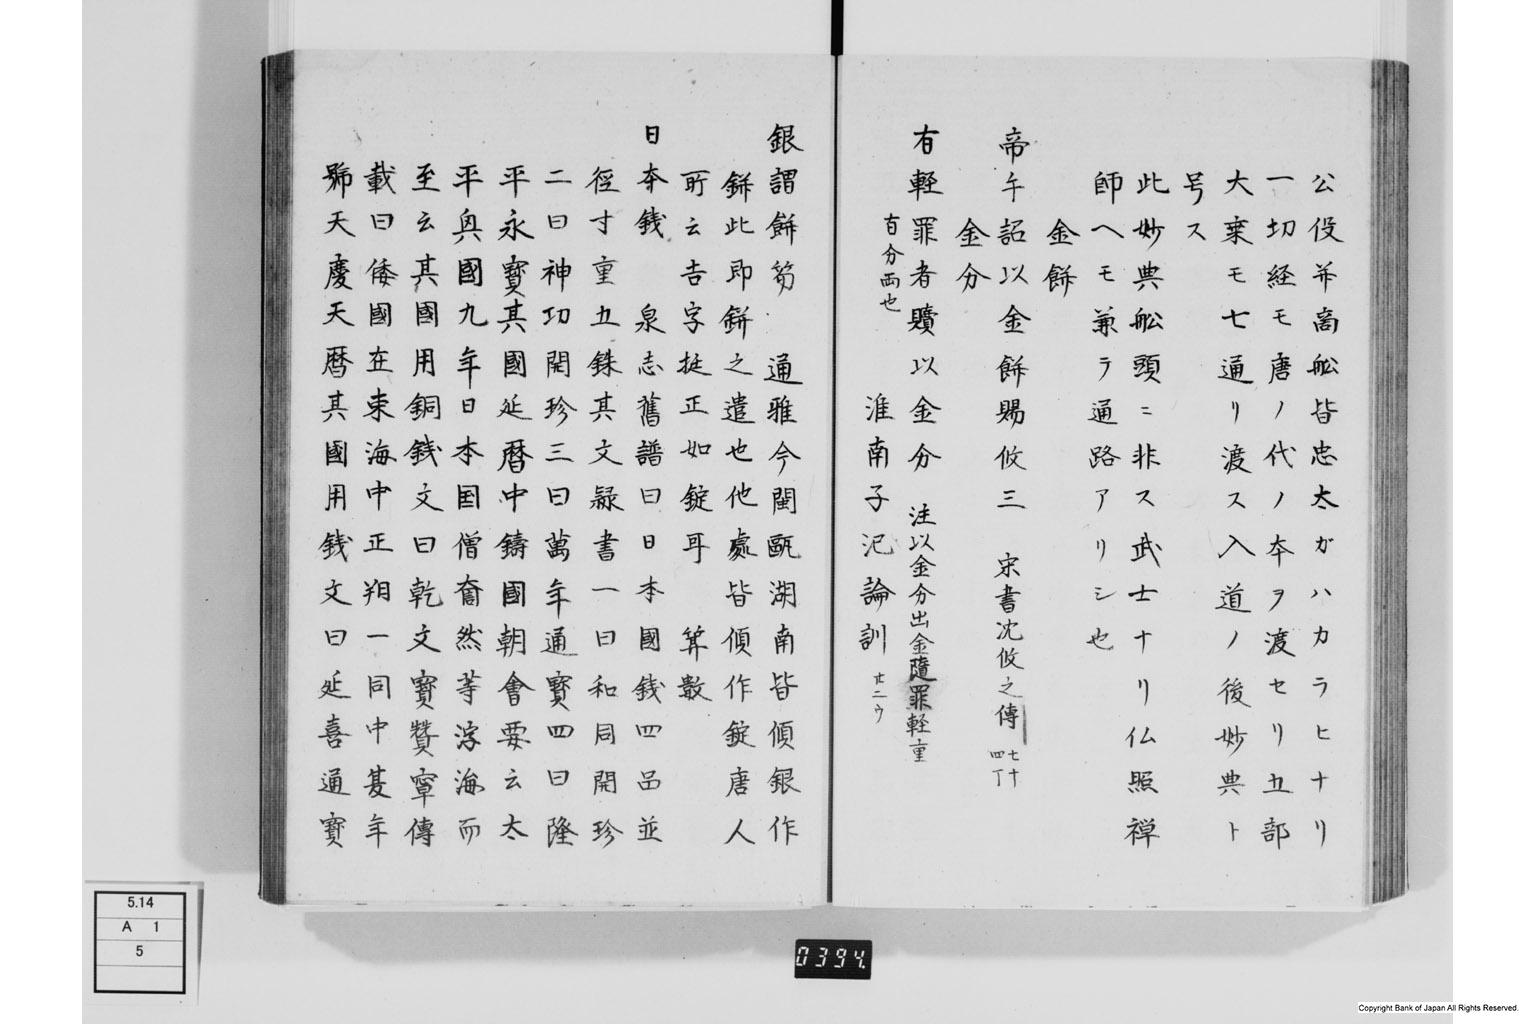 公役并商舩皆忠太ガハカラヒナリ
一切経モ唐ノ代ノ本ヲ渡セリ五部
大乗モ七通リ渡ス入道ノ後妙典ト
号ス
此妙典舩頭ニ非ス武士ナリ仏照禅
師ヘモ兼ラ通路アリシ也
金餅
帝乍詔以金餅賜攸三 宋書沈攸之傳 七十四丁
金分
有軽罪者贖以金分 注以金分出金隨罪軽重
百分両也
淮南子氾論訓 廿二ウ
銀謂餅笏 通雅今閩甌湖南皆傾銀作
餅此即餅之遣也他處皆傾作錠唐人
所云吉字挺正如錠耳 筭數
日本錢 泉志舊譜曰日本國錢四品並
徑寸重五銖其文隷書一曰和同開珍
二曰神功開珍三曰萬年通寳四曰隆
平永寳其國延暦中鑄國朝會要云太
平興國九年日本国僧奝然等浮海而
至云其國用銅錢文曰乾文寳贊寧傳
載曰倭國在東海中正朔一同中夏年
號天慶天暦其國用錢文曰延喜通寳
5.14
A 1
5
0394
Copyright Bank of Japan All Rights Reserved.